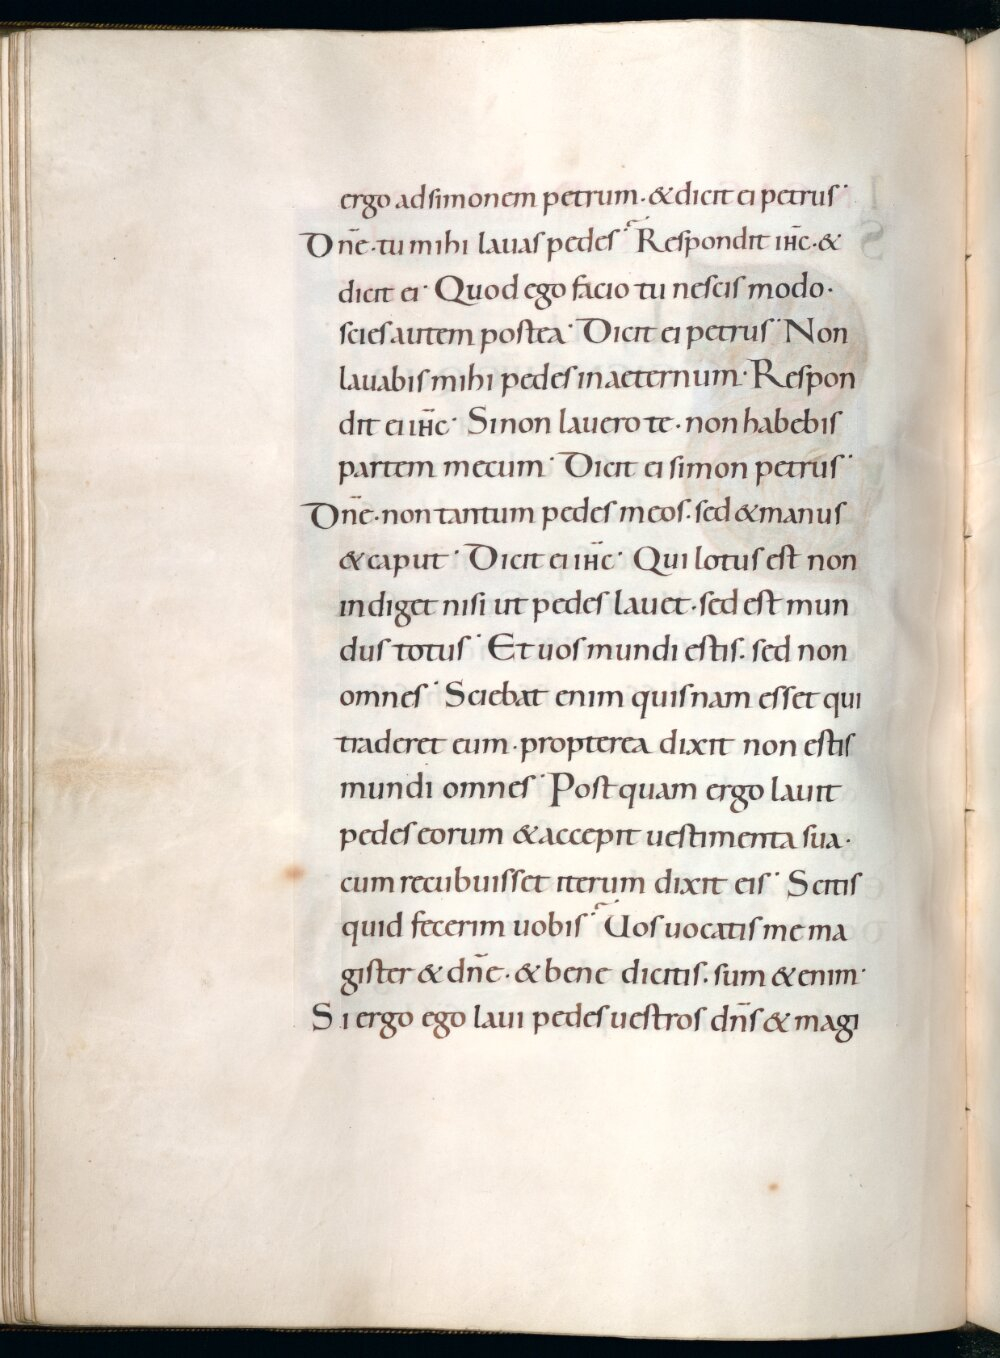 ergo ad simonem petrum · & dicit ei petrus ·
Dn̄e · tu mihi lauas pedes · Respondit ih̄c · &
dicit ei · Quod ego facio tu nescis modo ·
scies autem postea · Dicit ei petrus · Non
lauabis mihi pedes in aeternum · Respon
dit ei ih̄c · Si non lauero te · non habebis
partem mecum · Dicit ei simon petrus ·
Dn̄e · non tantum pedes meos · sed & manus
& caput · Dicit ei ih̄c · Qui lotus est non
indiget nisi ut pedes lauet · sed est mun
dus totus · Et uos mundi estis · sed non
omnes · Sciebat enim quisnam esset qui
traderet eum · propterea dixit non estis
mundi omnes · Post quam ergo lauit
pedes eorum & accepit uestimenta sua ·
cum recubuisset iterum dixit eis · Scitis
quid fecerim uobis · Uos uocatis me ma
gister & dn̄e · & bene dicitis · sum & enim ·
Si ergo ego laui pedes uestros dn̄s & magi